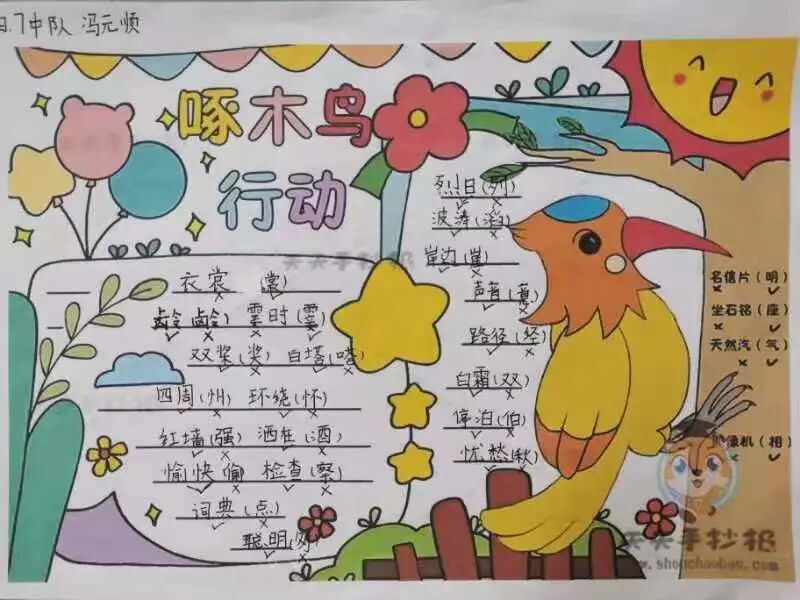 四.7中队 冯元顺
啄木鸟
行动
衣裳 (常)
龄(龄) 霎时(霎)
双桨(浆) 白塔(嗒)
四周(州) 环绕(怀)
红墙(强) 洒在(酒)
愉快(偷) 检查(察)
词典(点)
聪明
烈日(列)
波涛(滔)
岸边(崖)
声音(意)
路径(经)
白霜(双)
停泊(伯)
忧愁(秋)
名信片(明)
坐石铭(座)
天然汽(气)
像机(相)
天天手抄报
天天手抄报
www.shouchaobao.com